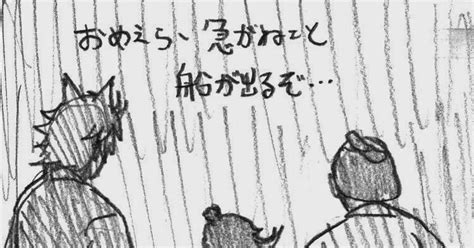 おめえら、急がねこと
船が出るぞ…